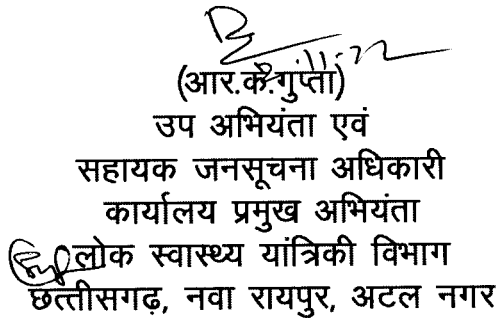 (आर.के.गुप्ता)
उप अभियंता एवं
सहायक जनसूचना अधिकारी
कार्यालय प्रमुख अभियंता
लोक स्वास्थ्य यांत्रिकी विभाग
छत्तीसगढ़, नवा रायपुर, अटल नगर